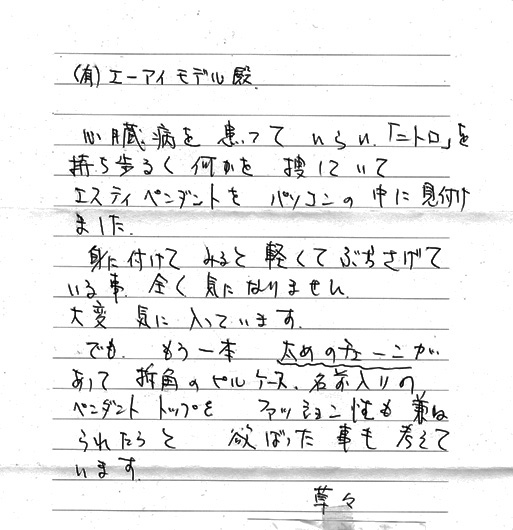 (有)エーアイモデル殿
心臓病を患っていらい、「ニトロ」を
持ち歩るく何かを捜していて
エスティペンダントをパソコンの中に見付け
ました。
身に付けてみると軽くてぶらさげて
いる事、全く気になりません。
大変気に入っています。
でも、もう一本太めのチェーンが
あって折角のピルケース、名前入りの
ペンダントトップをファッション性も兼ね
られたらと欲ばった事も考えて
います。
草々